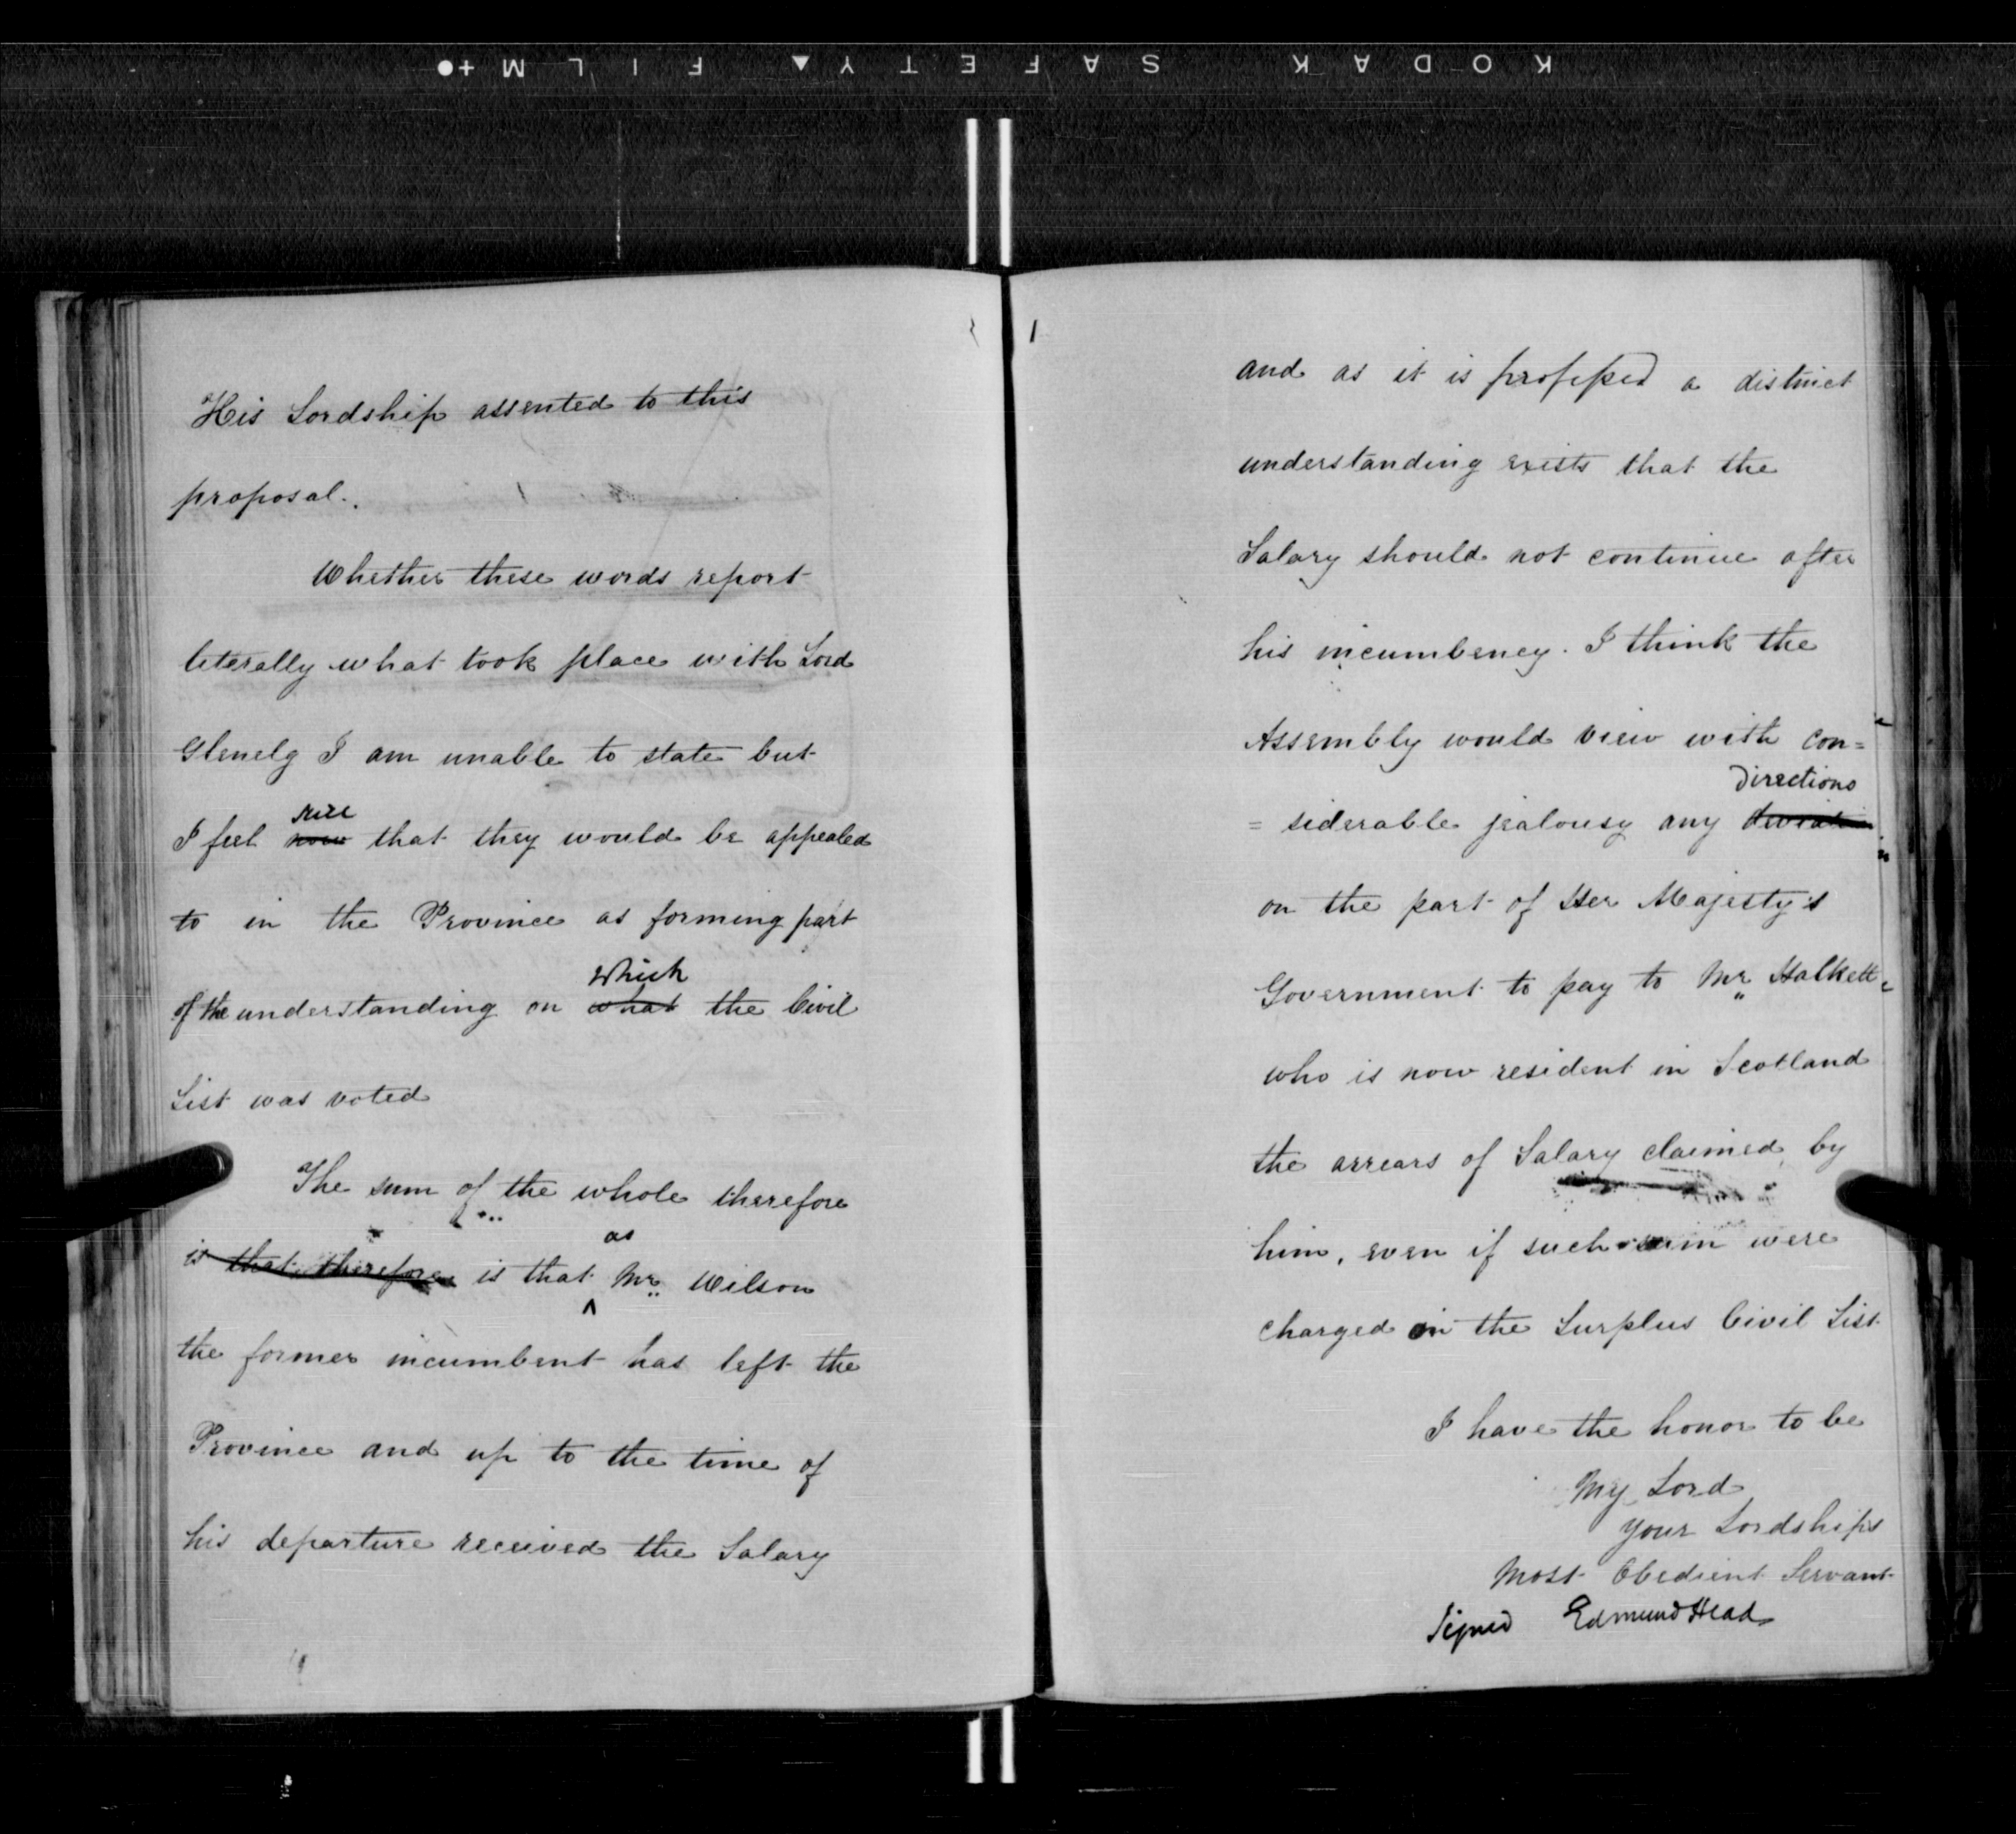 KODAK SAFETY FILM
His Lordship assented to this
proposal.
Whether these words report
literally what took place with Lord
Glenelg I am unable to state but
sure
I feel now that they would be appealed
to in the Province as forming part
which
of the understanding on what the Civil
List was voted
The sum of the whole therefore
as
is that therefore is that Mr. Wilson
the former incumbent has left the
Province and up to the time of
his departure received the Salary
and as it is professed a distinct
understanding exists that the
Salary should not continue after
his incumbency. I think the
Assembly would view with con=
Directions
= siderable jealousy any
on the part of Her Majesty's
Government to pay to Mr. Halkett
who is now resident in Scotland
the arrears of Salary claimed by
him, even if such sum were
charged on the Surplus Civil List
I have the honor to be
My Lord
Your Lordships
Most Obedient Servant
Signed Edmund Head